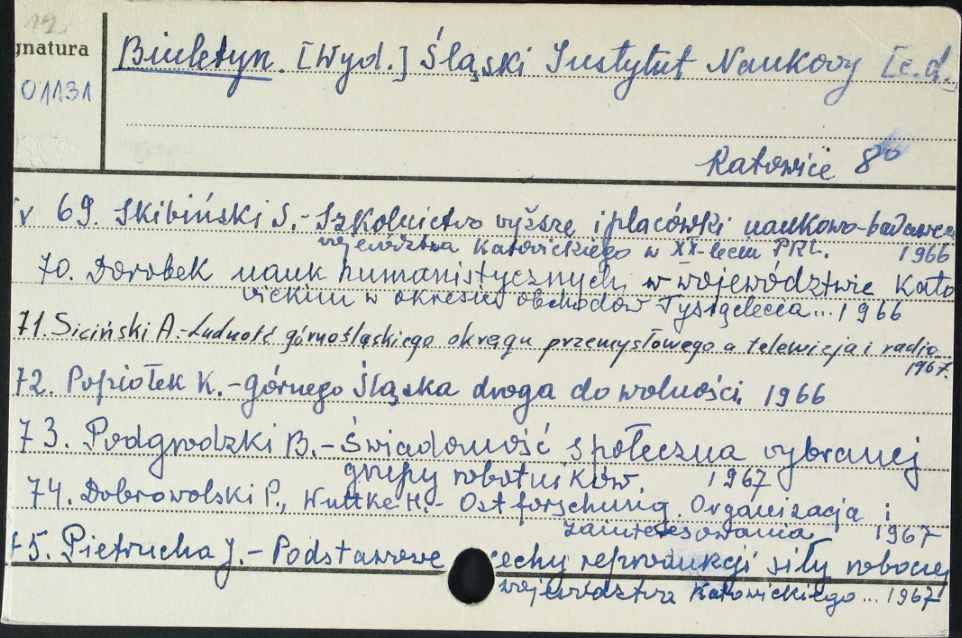 12
gnatura
01131
Biuletyn. [Wyd.] Śląski Instytut Naukowy [c.d.
Katowice 8°
69. Skibiński S.- Szkolnictwo wyższe i placówki naukowo-badawcze
województwa Katowickiego w XX-leciu PRL. 1966
70. Dorobek nauk humanistycznych w województwie Kato
wickim w okresie obchodów Tysiąclecia... 1966
71. Siciński A.-Ludność górnośląskiego okręgu przemysłowego a telewizja i radio
1967.
72. Popiołek K.- Górnego Śląska droga do wolności 1966
73. Podgrodzki B.- Świadomość społeczna wybranej
grupy robotników. 1967
74. Dobrowolski P., Wuttke H.- Ostforschung. Organizacja i
zainteresowania 1967
75. Pietrucha J.- Podstawowe cechy reprodukcji siły roboczej
województwa Katowickiego... 1967